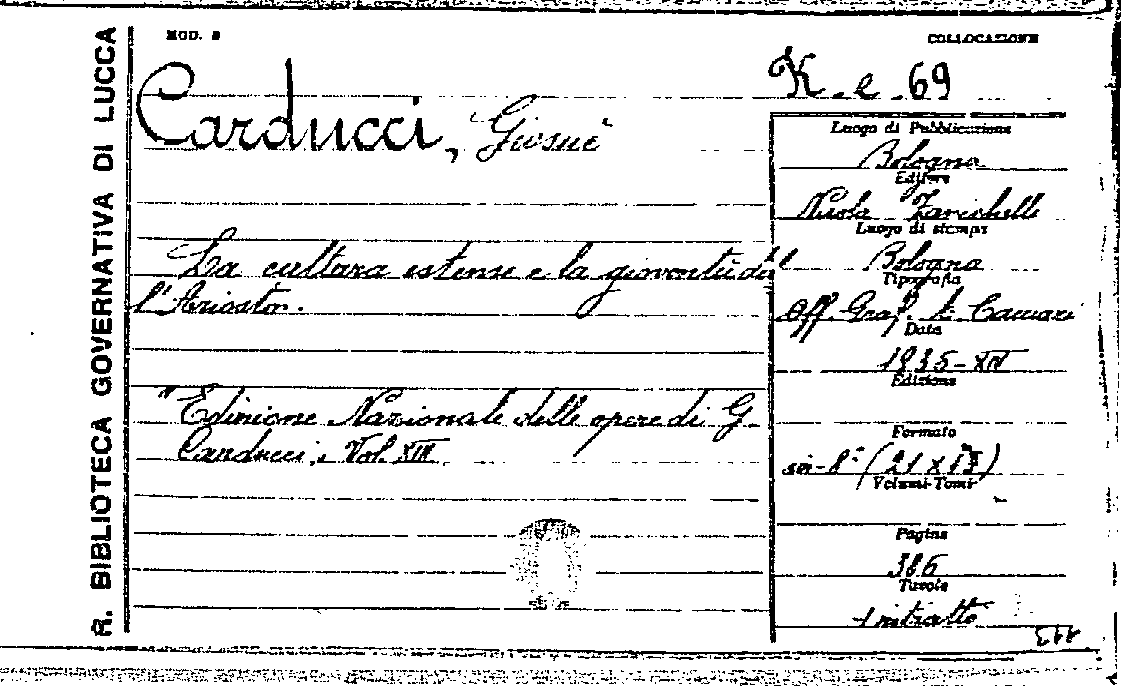 R. BIBLIOTECA GOVERNATIVA DI LUCCA
MOD. 8
COLLOCAZIONE
K. e. 69
Carducci, Giosuè
La cultura estense e la gioventù del
l'Ariosto.
"Edizione Nazionale delle opere di G.
Carducci, Vol. XIII
Luogo di Pubblicazione
Bologna
Editore
Nicola Zanichelli
Luogo di stampa
Bologna
Tipografia
Off. Graf. A. Cacciari
Data
1935-XIV
Edizione
Formato
in-8° (21 x 13)
Volumi-Tomi
Pagine
386
Tavole
1 ritratto